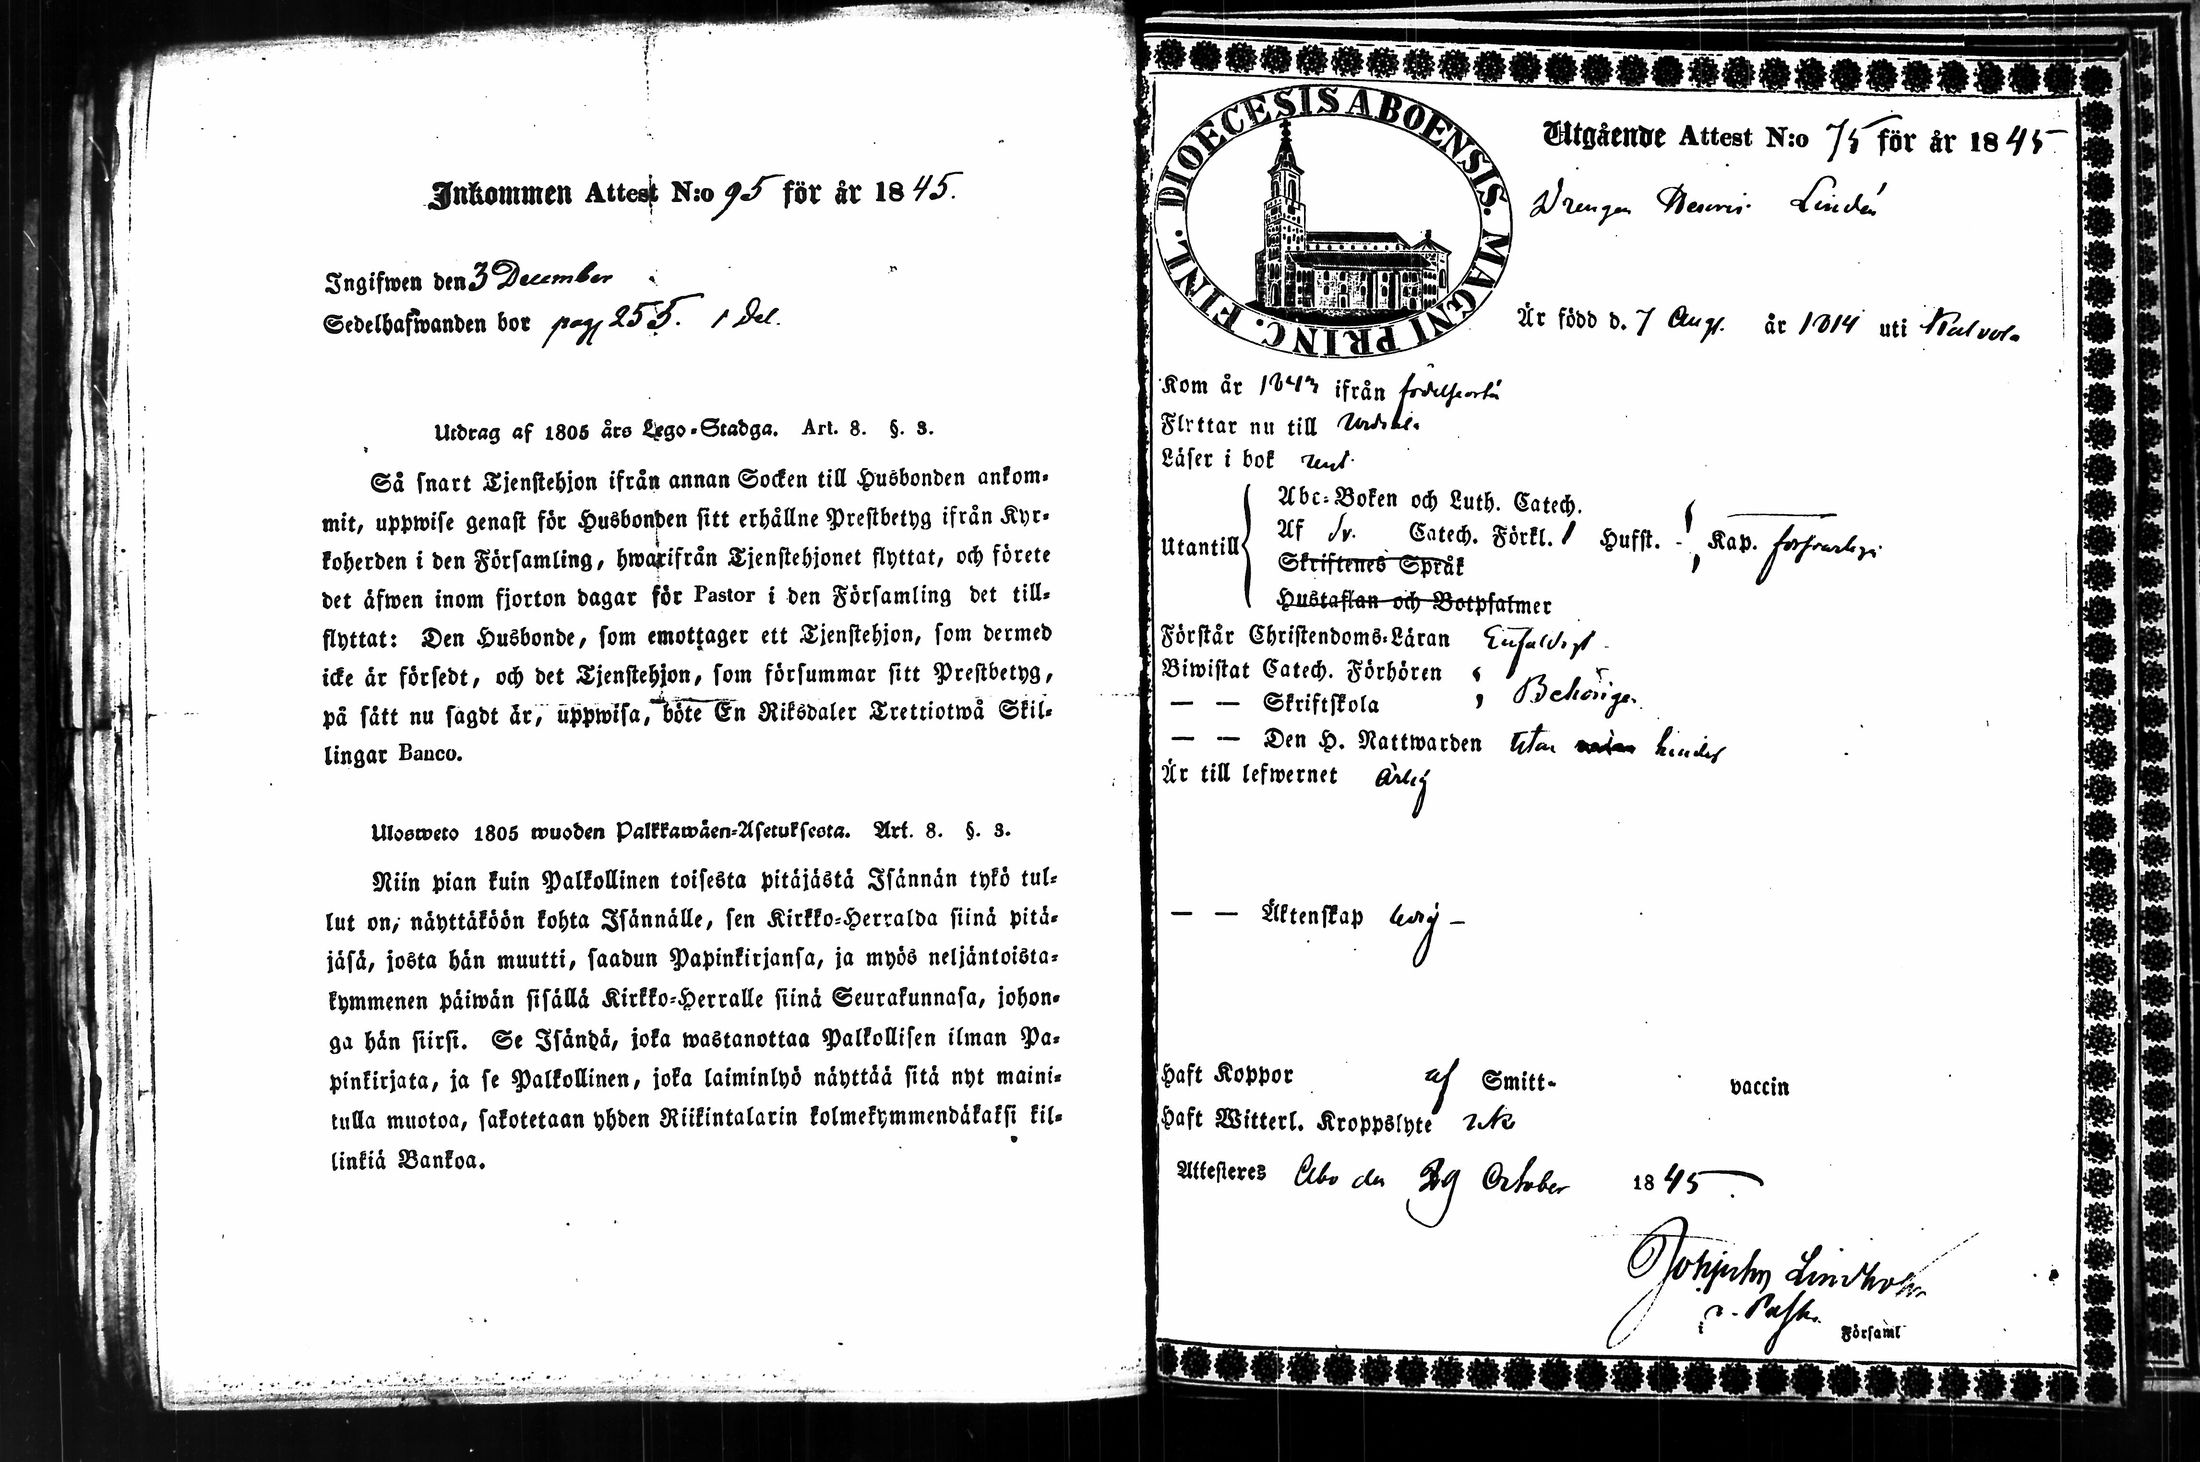 Inkommen Attest N:o 95 för år 1845.
Ingifwen den 3 December
Sedelhafwanden bor pag 255. 1 Del.
Utdrag af 1805 års Lego-Stadga. Art. 8. §. 3.
Så snart Tjenstehjon ifrån annan Socken till Husbonden ankom-
mit, uppwise genast för Husbonden sitt erhållne Prestbetyg ifrån Kyr-
koherden i den Församling, hwarifrån Tjenstehjonet flyttat, och förete
det äfwen inom fjorton dagar för Pastor i den Församling det till-
flyttat: Den Husbonde, som emottager ett Tjenstehjon, som dermed
icke är försedt, och det Tjenstehjon, som försummar sitt Prestbetyg,
på sätt nu sagdt är, uppwisa, böte En Riksdaler Trettiotwå Skil-
lingar Banco.
Ulosweto 1805 wuoden Palkkawäen-Asetuksesta. Art. 8. §. 3.
Niin pian kuin Palkollinen toisesta pitäjästä Isännän tykö tul-
lut on, näyttäköön kohta Isännälle, sen Kirkko-Herralda siinä pitä-
jäsä, josta hän muutti, saadun Papinkirjansa, ja myös neljäntoista-
kymmenen päiwän sisällä Kirkko-Herralle siinä Seurakunnasa, johon-
ga hän siirsi. Se Isändä, joka wastanottaa Palkollisen ilman Pa-
pinkirjata, ja se Palkollinen, joka laiminlyö näyttää sitä nyt maini-
tulla muotoa, sakotetaan yhden Riikintalarin kolmekymmendäkaksi kil-
linkiä Bankoa.
DIOECESIS ABOENSIS. MAGNI PRINC. FINL.
Utgående Attest N:o 75 för år 1845
Drengen Lindén
Är född d. 7 Aug. år 1814 uti Kalvola
Kom år 1843 ifrån födelseorten
Flyttar nu till
Läser i bok rent
Abc-Boken och Luth. Catech.
Utantill Af Sv. Catech. Förkl. Hufst. Kap. försvarligt
Skriftenes Språk
Hustaflan och Botpsalmer
Förstår Christendoms-Läran Enfaldigt
Biwistat Catech. Förhören
— — Skriftskola Behörigen
— — Den H. Nattwarden utan hinder
Är till lefwernet ärlig
— — Äktenskap ledig —
Haft Koppor af Smitt- vaccin
Haft Witterl. Kroppslyte icke
Attesteres Åbo den 29 October 1845.
Lindholm
v. Past.
i Församl